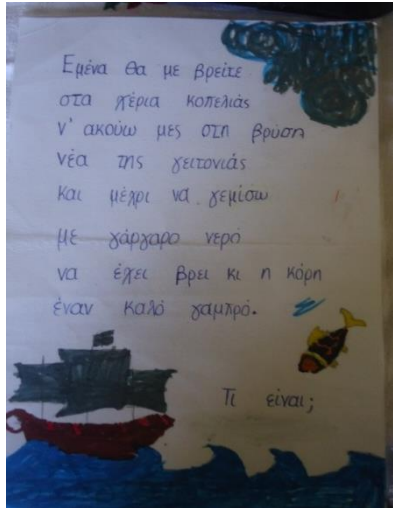 Εμένα θα με βρείτε
στα χέρια κοπελιάς
ν' ακούω μες στη βρύση
νέα της γειτονιάς
και μέχρι να γεμίσω
με γάργαρο νερό
να έχει βρει κι η κόρη
έναν καλό γαμπρό.
Τι είναι;